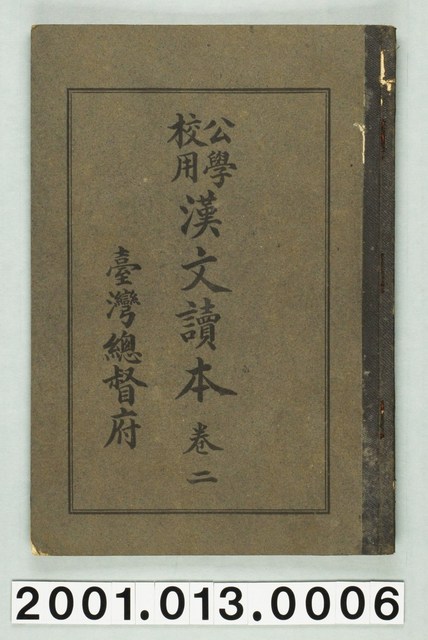 公學
校用
漢文讀本 卷二
臺灣總督府
2001.013.0006